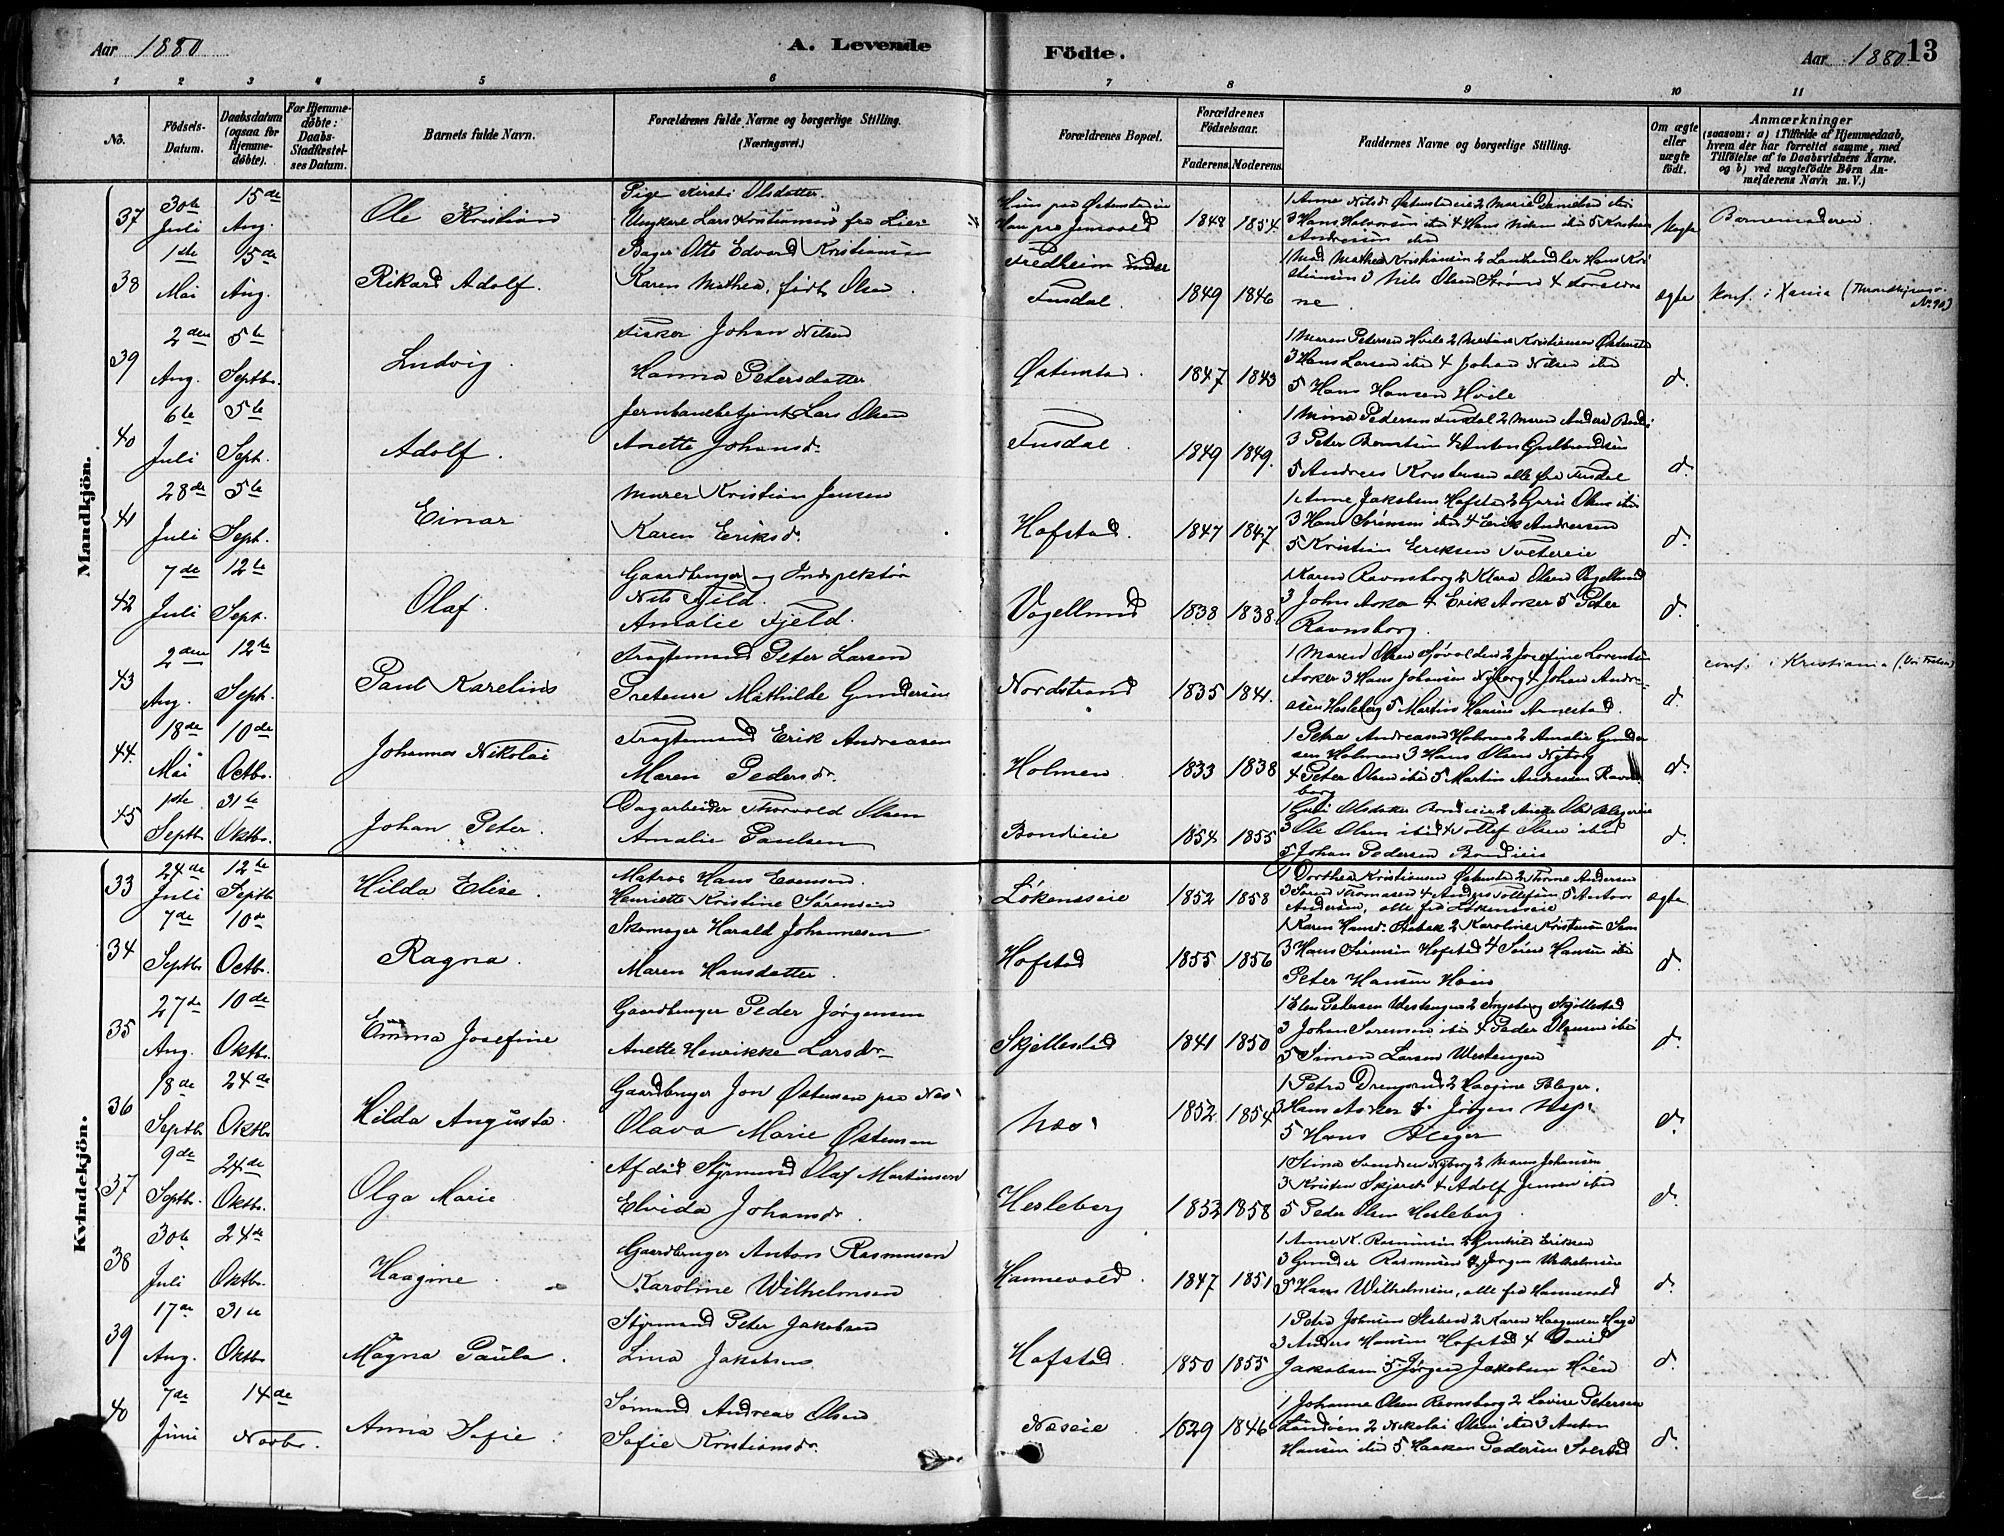 Aar 1880
A. Levende
Födte.
Aar 1880
13
1 2 3 4 5 6 7 8 9 10 11
No.
Födsels-Datum.
Daabsdatum (ogsaa for Hjemme-döbte).
For Hjemme-döbte: Daabs-Stadfæstel-ses Datum.
Barnets fulde Navn.
Forældrenes fulde Navne og borgerlige Stilling. (Næringsvei.)
Forældrenes Bopæl.
Forældrenes Födselsaar.
Faderens. Moderens.
Faddernes Navne og borgerlige Stilling.
Om ægte eller uægte födt.
Anmærkninger
(saasom: a) i Tilfælde af Hjemmedaab,
hvem der har forrettet samme, med
Tilföielse af to Daabsvidners Navne.
og b) ved uægtefödte Börn An-
melderens Navn m. V.)
Mandkjön.
37 30te Juli 15de Aug. Ole Kristian
Pige Kirsti Olsdatter
Ungkarl Lars Kristiansen fra Lier
1848 1854
1 Anne Nilsd Østenstadeie 2 Marie
3 Hans Halvorsen ibd 4 Hans Nilsen ibd 5 Kristian
Andreasen ibd
Uægte Barnemoderen.
38 1ste Mai 15de Aug. Rikard Adolf.
Bager Otto Edvard Kristiansen
Karen Mathea, født Olsen
Fredheim under
Fusdal. 1849 1846
1 Mad. Mathea Kristiansen 2 Landhandler Hans Kri-
stiansen 3 Nils Olsen Strøm 4 Foræld-
ne
ægte konf. i Xania
39 2den Aug. 5te Septbr. Ludvig.
Fisker Johan Nilsen
Hanna Petersdatter
Østenstad. 1847 1843
1 Maren Petersen Hvile 2 Martine Kristiansen Østensta
3 Hans Larsen ibd 4 Johan Nilsen ibd
5 Hans Hansen Hvile
d.
40 6te Juli 5te Sept. Adolf.
Jernbanebetjent Lars Olsen
Anette Johansd.
Fusdal. 1849 1849.
1 Mina Pedersen Fusdal 2 Maren Anders
3 Peter Berntsen 4 Anton Gulbrandsen
5 Andreas Kristensen alle fra Fusdal
d.
41 28de Juli 5te Sept. Einar
Murer Kristian Jensen
Karen Eriksd.
Hofstad. 1847 1847
1 Anne Jakobsen Hofstad 2 Guri Olsen ibd
3 Hans Sørensen ibd 4 Erik Andersen
5 Kristian Eriksen Tvetereie
d.
42 7de Juli 12te Sept. Olaf.
Gaardbruger og Indspektør
Nils Fjeld.
Amalie Fjeld.
Vogellund 1838 1838
1 Karen Ravnsborg 2 Klara Olsen Vogellund
3 John Asker 4 Erik Asker 5 Peter
Ravnsborg
d.
43 2den Aug. 12te Septr. Paul Karelius
Fragtemand Peter Larsen
Pretense Mathilde Gundersen
Nordstrand 1835 1841.
1 Maren Olsen Sjøvolden 2 Josefine Lorentsen
Asker 3 Hans Johansen Nyborg 4 Johan Andre-
asen Hesleberg 5 Martin Hansen Arnestad.
d. conf. i Kristiania
44. 18de Mai 10de Octbr. Johannes Nikolai
Fragtemand Erik Andreasen
Maren Pedersd.
Holmen. 1833 1838
1 Petra Andreasen Holmen 2 Amalie Gunder
sen Holmen 3 Hans Olsen Nyborg
4 Peter Olsen ibd 5 Martin Andersen Ravns
borg
d.
45 1ste Septbr. 31te Oktbr. Johan Peter.
Dagarbeider Thorvald Olsen
Amalie Paulsen
Bondieie 1854 1855
1 Guri Olsdatter Bondieie 2 Anette Olsd Blegereie
3 Ole Olsen ibid 4 Tollef Olsen ibid
5 Johan Pedersen Bondieie
d.
Kvindekjön.
33 24de Juli 12te Septbr Hilda Elise.
Matros Hans Evensen.
Henriette Kristine Sørensen
Løkenseie 1852 1858
1 Dorthea Kristiansen Østenstad 2 Thorine Andersen
3 Søren Thomasen 4 Anders Tollefsen 5 Anton
Andersen, alle fra Løkenseie
ægte
34 7de Septbr. 10de Octbr. Ragna.
Skomager Harald Johannesen
Maren Hansdatter.
Hofstad 1855 1856
1 Karen Hansd. 2 Karoline Kristensen Sem
3 Hans Sørensen Hofstad 4 Søren Hansen ibd
Peter Hansen Høin
d.
35 27de Aug. 10de Oktbr. Emma Josefine
Gaardbruger Peder Jørgensen
Anette Henrikke Larsdr
Skjellestad 1841 1850
1 Elen Pedersen Vestengen 2 Ingeborg Skjellestad
3 Johan Sørensen ibd 4 Peder Olausen ibd
5 Simon Larsen Vestengen
d.
36 18de Septbr 24de Oktbr. Hilda Augusta.
Gaardbruger Jon Østensen paa Næs
Olava Marie Østensen
Næs 1852 1854
1 Petra Drengsrud 2 Haagine Bleger.
3 Hans Asker 4 Jørgen Næs
5 Hans Bleger
d.
37 9de Septbr. 24de Oktbr. Olga Marie
Afdød Styrmand Olaf Martinsen
Elvida Johansdr.
Hesleberg 1832 1858
1 Stina Svendsen Nyborg 2 Maren Johansen
3 Kristen Skjeret 4 Adolf Jensen ibid
5 Peder Olsen Hesleberg.
d.
38 30te Juli 24de Oktbr. Haagine.
Gaardbruger Anton Rasmussen
Karoline Wilhelmsen
Hannevold. 1847 1851
1 Anne K. Rasmussen 2 Gunhild Eriksen
3 Gunder Rasmussen 4 Jørgen Wilhelmsen
5 Hans Wilhelmsen, alle fra Hannevold
d.
39 17de Aug. 31te Oktbr Magna Paula.
Styrmand Peter Jakobsen
Lina Jakobsen
Hofstad. 1850 1855
1 Petra Johnsen 2 Karen Haagensen Haga
3 Anders Hansen Hofstad 4 David
Jakobsen 5 Jørgen Jakobsen Høen
d.
40 7de Juni 14de Novbr. Anna Sofie.
Sømand Andreas Olsen
Sofie Kristiansdr.
Næseie 1829 1846
1 Johanne Olsen Ravnsborg 2 Lovise Petersen
Landøen 2 Nikolai Olsen ibid 3 Anton
Hansen ibd 5 Haakon Pedersen
d.